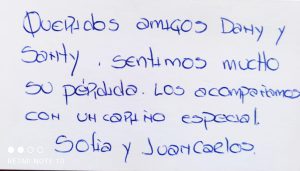 Queridos amigos Dany y
Santy. Sentimos mucho
su pérdida. Los acompañamos
con un cariño especial.
Sofia y Juan Carlos.
REDMI NOTE 10